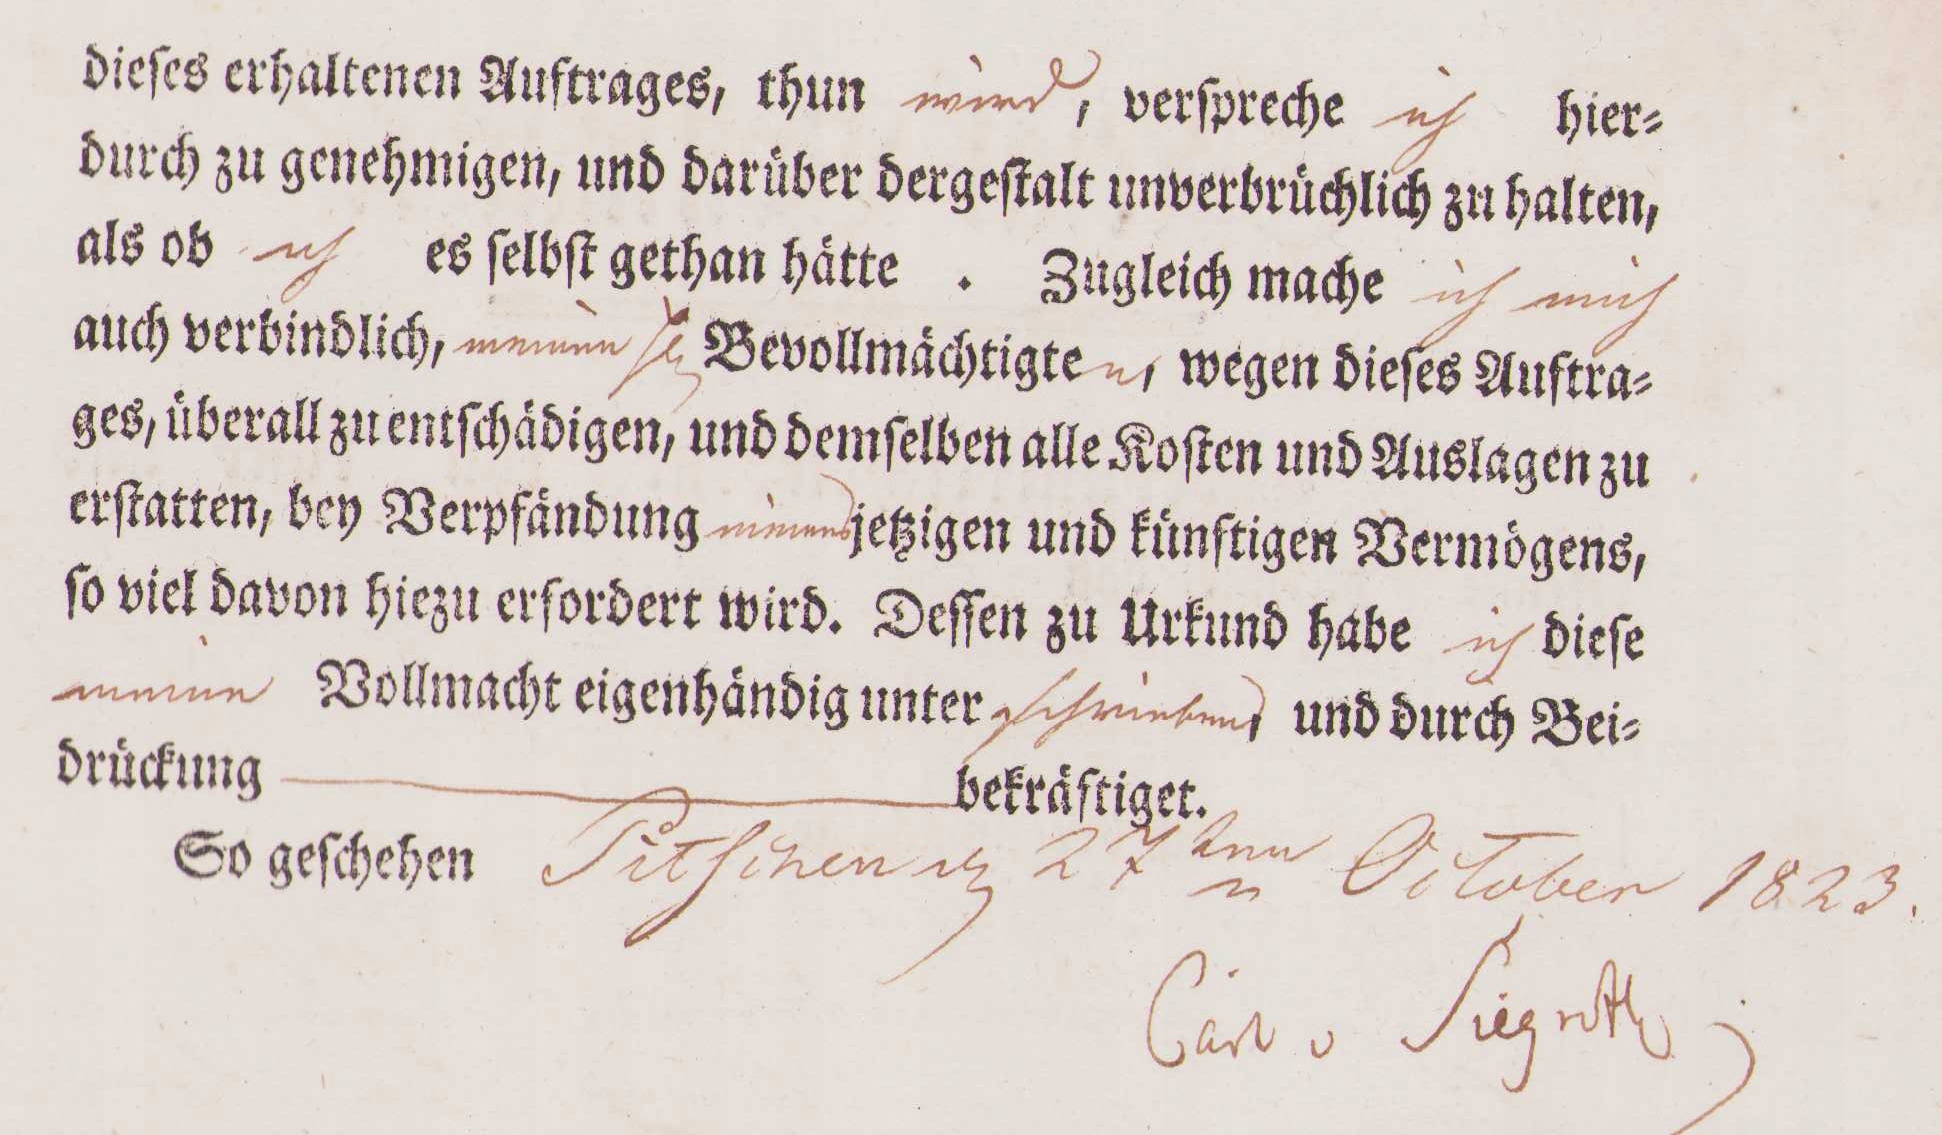 dieses erhaltenen Auftrages, thun wird, verspreche ich hier⸗
durch zu genehmigen, und darüber dergestalt unverbrüchlich zu halten,
als ob ich es selbst gethan hätte . Zugleich mache ich mich
auch verbindlich, meinen H Bevollmächtigten, wegen dieses Auftra⸗
ges, überall zu entschädigen, und demselben alle Kosten und Auslagen zu
erstatten, bey Verpfändung meines jetzigen und künftigen Vermögens,
so viel davon hiezu erfordert wird. Dessen zu Urkund habe ich diese
meine Vollmacht eigenhändig unterschrieben, und durch Bei⸗
drückung bekräftiget.
So geschehen Pitschen 27ten October 1823.
Carl v Siegroth